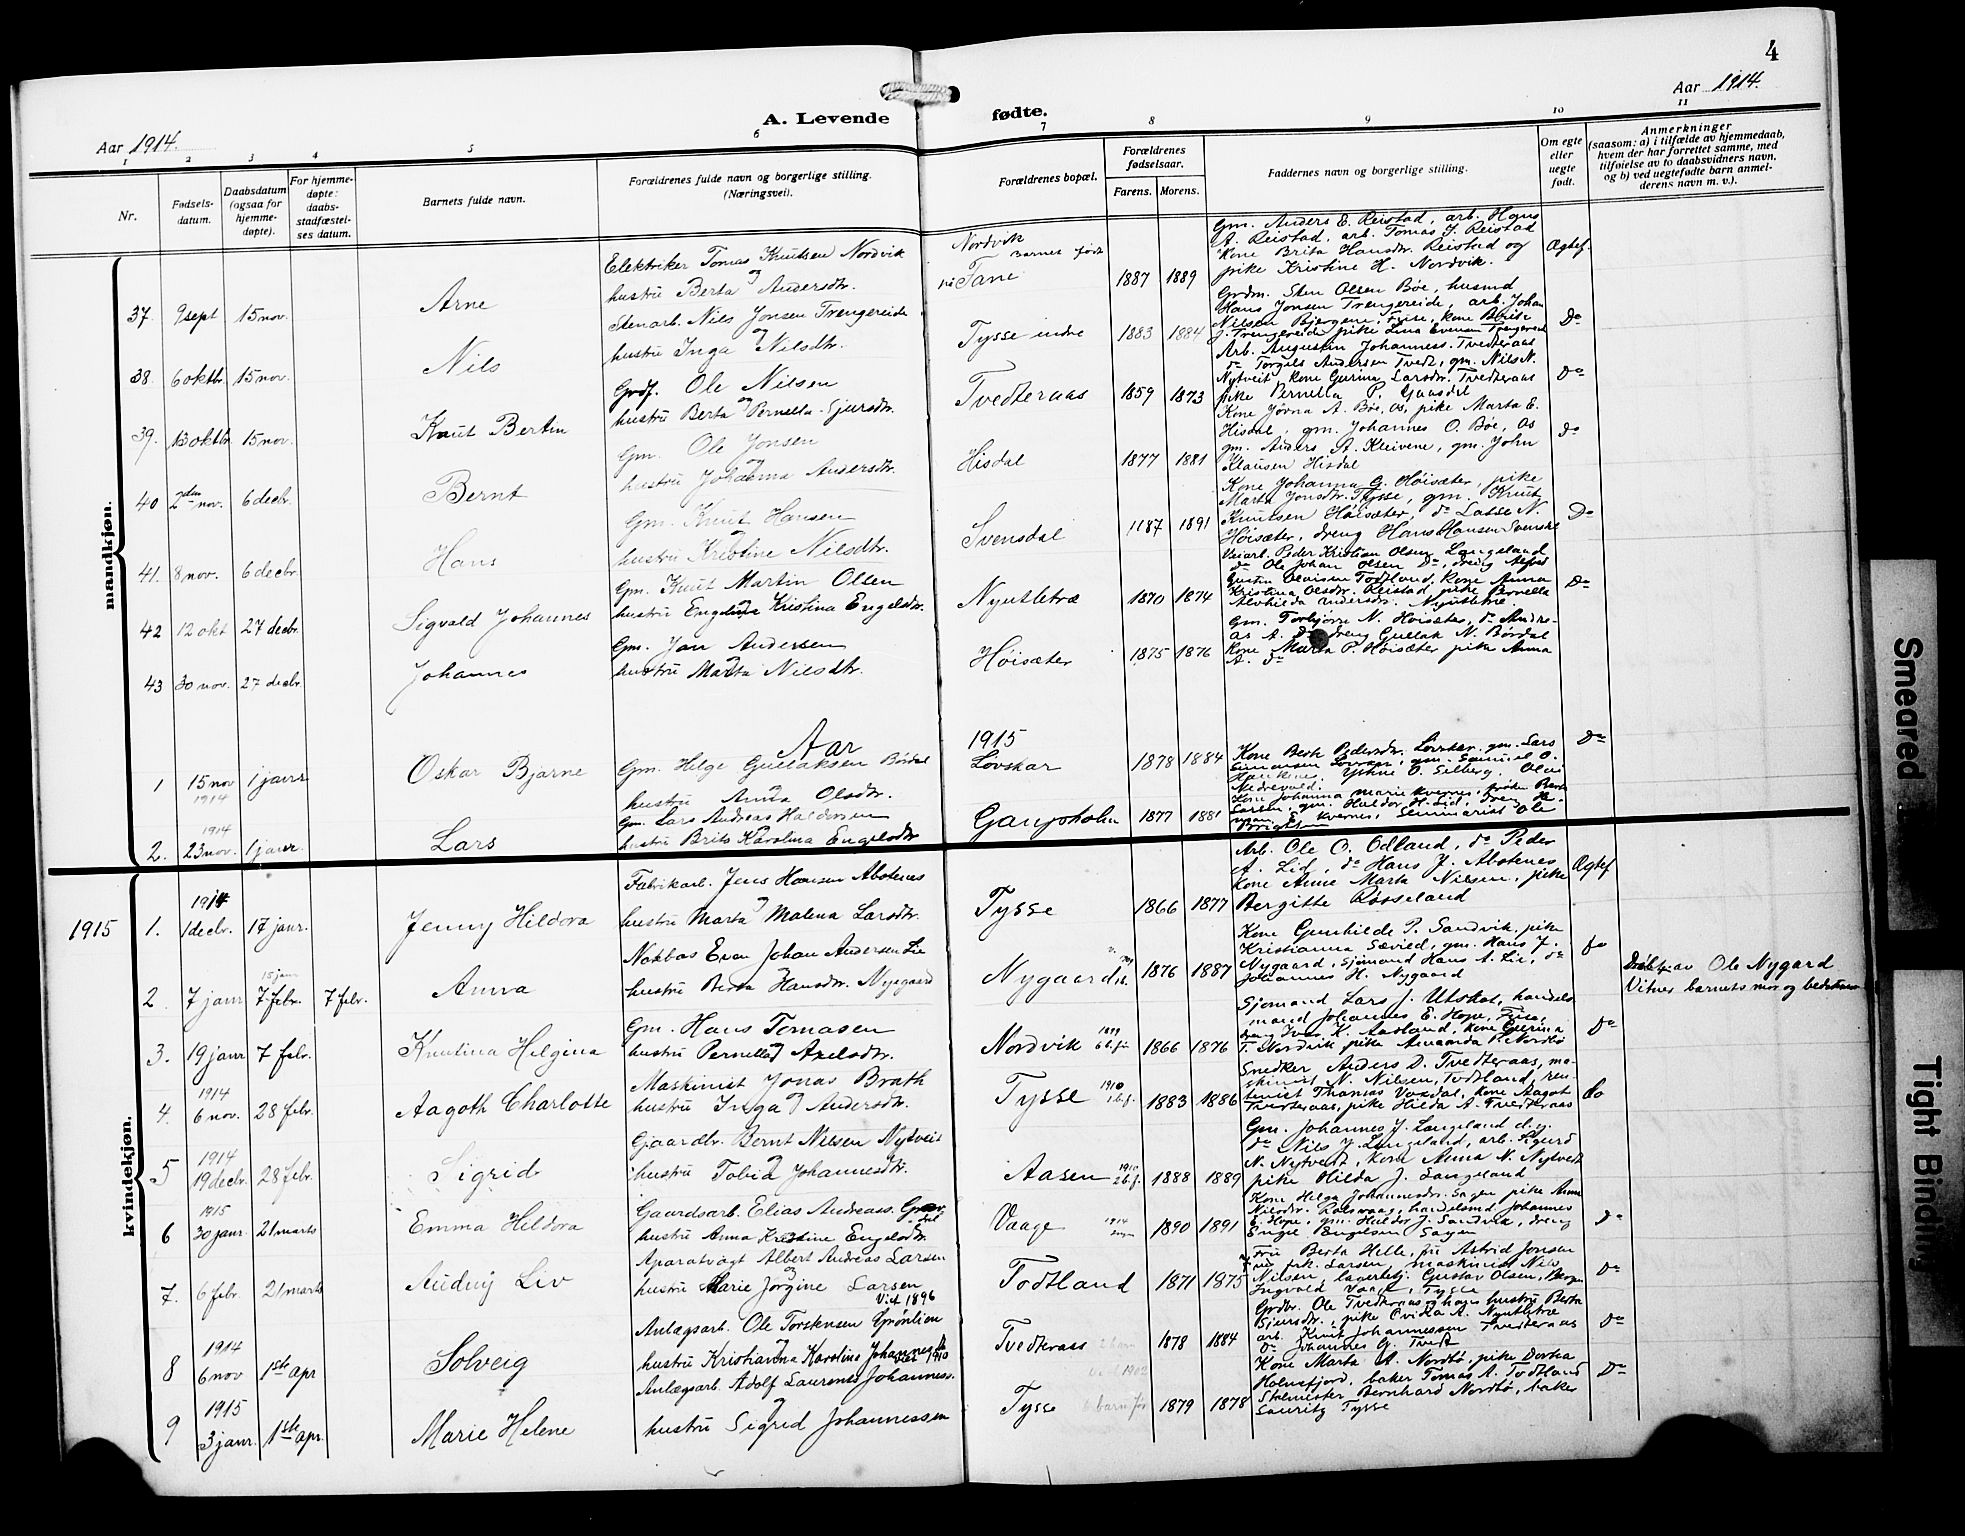 4
Aar 1914. A. Levende fødte. Aar 1914.
1 2 3 4 5 6 7 8 9 10 11
Nr.
Fødsels-
datum.
Daabsdatum
(ogsaa for
hjemme-
døpte).
For hjemme-
døpte:
daabs-
stadfæstel-
ses datum.
Barnets fulde navn.
Forældrenes fulde navn og borgerlige stilling.
(Næringsvei).
Forældrenes bopæl.
Forældrenes
fødselsaar.
Farens. Morens.
Faddernes navn og borgerlige stilling.
Om egte
eller
uegte
født.
Anmerkninger
(saasom: a) i tilfælde av hjemmedaab,
hvem der har forrettet samme, med
tilføielse av to daabsvidners navn,
og b) ved uegtefødte barn anmel-
derens navn m. v.).
mandkjøn.
37. 9 sept 15 nov. Arne
Elektriker Tomas Knutsen Nordvik
og
hustru Berta Andersdtr.
Nordvik
Barnet født
i Fane
1887 1889
Gm. Anders E. Reistad, arb. Hans
A. Reistad, arb. Tomas J. Reistad
Kone Brita Hansdtr. Reistad og
pike Kristine H. Nordvik.
Ægtef.
38. 6 oktbr. 15 nov. Nils
Stenarb. Nils Jonsen Trengereide
og
hustru Inga Nilsdtr.
Tysse indre
1883 1884
Grdm. Sten Olsen Bøe, husmd
Hans Jonsen Trengereide, arb. Johan
Do
39. 13 oktbr 15 nov. Knut Bertin
Grdf. Ole Nilsen
og
hustru Berta Pernella Sjursdtr.
Tvedteraas
1859 1873
Arb. Augustin Johanness. Tvedteraas
do Torgils Andersen Tvedt, gm. Nils N.
Nytveit kone Gurina Larsdtr. Tvedteraas
pike Pernella P. Gaasdal
Do
40 2den nov. 6 decbr. Bernt
Gm. Ole Jonsen
og
hustru Johanna Andersdtr.
Hisdal
1877 1881
Kone Jørna A. Bøe, Os, pike Marta E.
Hisdal, gm. Johannes O. Bøe, Os
gm. Anders A. Kleivene, gm. John
Klausen Hisdal
Do
41. 8 nov. 6 decbr. Hans
Gm. Knut Hansen
og
hustru Kristine Nilsdtr.
Svensdal
1187 1891
Kone Johanna G. Høisæter, pike
Marta Jonsdtr. Tysse, gm. Knut
Knutsen Høisæter, do Lasse N.
Høisæter, dreng Hans Hansen Svensdal
Do
42 12 okt 27 decbr. Sigvald Johannes
Gm. Knut Martin Olsen
hustru Engelina Kristina Engelsdtr.
Nyutletræ
1870 1874
Veiarb. Peder Kristian Olsen Langeland
do Ole Johan Olsen Do, dreng Alfred
Kristina Olsdtr. Reistad pike Pernella
Alvhilda Andersdtr. Nyutletræ.
Do
43 30 nov. 27 decbr. Johannes
Gm. Jan Andersen
og
hustru Marta Nilsdtr.
Høisæter
1875 1876
Gm. Torbjørn N. Høisæter, do Andre-
as A. Do dreng Gullak N. Børdal
Kone Marta P. Høisæter pike Anna
A. do
Aar 1915
1 15 nov 1914 1 januar Oskar Bjarne
Gm. Helge Gullaksen Børdal
og
hustru Anna Olsdtr.
Løvskar
1878 1884
Do
2. 1914 23 nov. 1 januar. Lars
Gm. Lars Andreas Haldorsen
hustru Brita Karolina Engelsdtr
Gaupholm
1877 1881
kvindekjøn.
1915 1. 1914 1 decbr. 17 januar. Jenny Hildora
Fabrikarb. Jens Hansen Abotenes
og
hustru Marta Malena Larsdtr.
Tysse
1866 1877
Arb. Ole O. Ødland, do Peder
A. Lid, do Hans J. Abotenes
Kone Anne Marta Nilsen, pike
Bergitte Røsseland
Ægtef
2 7 januar 15 januar 7 febr. 7 febr. Anna
Notbas Even Johan Andersen Lie
og
hustru Berta Hansdtr. Nygaard
Nygaard
1876 1887
Kone Gunhilde P. Sandvik, pike
Kristianna Sævild, gm. Hans J.
Nygaard, Sjømand Hans A. Lie, do
Johannes H. Nygaard
do
Døbt av Ole Nygard
Vitner barnets mor og bedstemor
3. 19 januar 7 febr. Knutina Helgina
Gm. Hans Tomasen
og
hustru Pernella Axelsdtr.
Nordvik
1866 1876
Sjømand Lars J. Utskot, handels
mand Johannes E. Hope, Fusa,
T. Nordvik pike Amanda P. Nordbø
Do
4. 1914 6 nov. 28 febr. Aagoth Charlotte
Maskinist Jonas Brath
og
hustru Inga Andersdtr.
Tysse 1910
1883 1886
Snedker Anders D. Tvedteraas, ma-
skinist N. Nilsen, Todtland, ren-
Tvedteraas, pike Hilda A. Tvedteraas
do
5 1914 19 decbr. 28 febr. Sigrid
Gjaardbr. Bernt Nilsen Nytveit
og
hustru Tobia Johannesdtr.
Aasen 1910 2 b.f.
1888 1889
Gm. Johannes J. Langeland d.y.
do Nils J. Langeland, arb. Sigurd
N. Nytvedt, kone Anna N. Nytvedt
pike Hilda J. Langeland
6 1915 30 januar. 21 marts Emma Hildora
Gaardsarb. Elias Andreass.
hustru Anna Kristine Engelsdtr.
Vaage 1914
1890 1891
Kone Helga Johannesdtr. Sagen pike Anna
E. Hope, gm. Haldor J. Sandvik, dreng
Engel Engelsen Sagen
Do
7. 6 febr. 21 marts Audny Liv
Aparatvagt Albert Andreas Larsen
og
hustru Marie Jørgine Larsen
Viet 1896
Todtland
1871 1875
Fru Berta Helle, fru Astrid Jonsen
frk. Larsen, maskinist Nils
Nilsen, lagerbetj. Gustav Olsen, Bergen
Ingvald Vaage, Tysse
Do
8 1914 6 nov 1ste apr Solveig
Anlægsarb. Ole Torstensen Grønlien
og
hustru Kristianna Karolina Johannesdtr
viet 1910
Tvedteraas 2 barn
1878 1884
arb. Knut Johannessen Tvedteraas
do Johannes G. Tvedt
Do
9 1915 3 januar. 1ste apr. Marie Helene
Anlægsarb. Adolf Laurents Johanness.
og
hustru Sigrid Johannessen
viet 1902
Tysse 6 barn før
1879 1878
Kone Marta A. Nordbø, pike Dortea
Holmefjord, baker Tomas A. Todtland
Stalmester Bernhard Nordbø, baker
Lauritz Tysse
Do
Smeared
Tight Binding